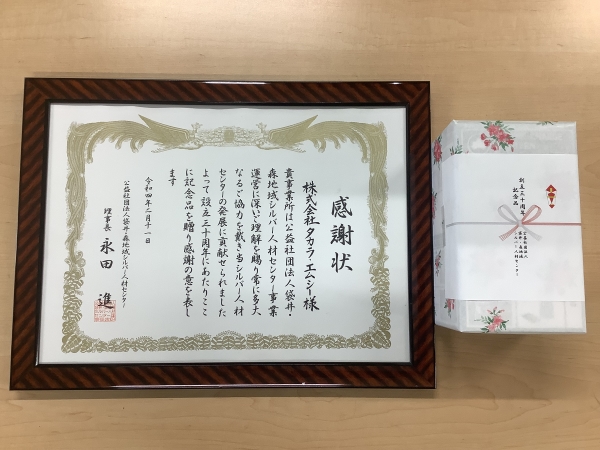 感謝状
株式会社タカラ・エムシー様
貴事業所は公益社団法人袋井・
森地域シルバー人材センター事業
運営に深いご理解を賜り常に多大
なるご協力を戴き当シルバー人材
センターの発展に貢献せられました
よって設立三十周年にあたりここ
に記念品を贈り感謝の意を表し
ます
令和四年二月十一日
公益社団法人袋井・森地域シルバー人材センター
理事長 永田 進
創立三十周年
記念品
公益社団法人
袋井・森地域
シルバー人材センター